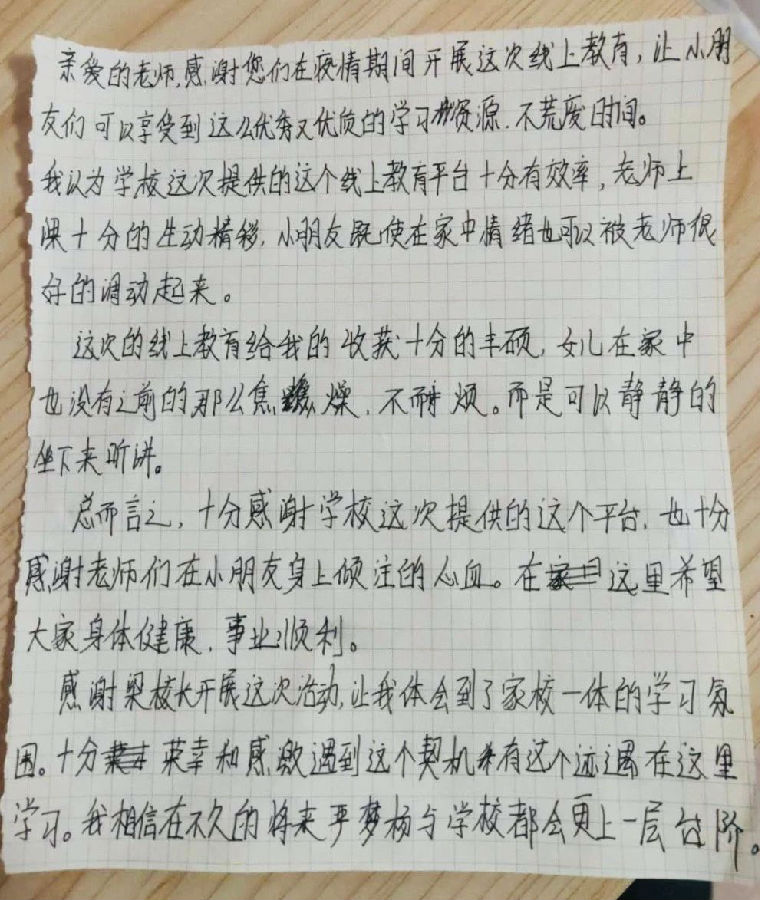 亲爱的老师,感谢您们在疫情期间开展这次线上教育,让小朋
友们可以享受到这么优秀又优质的学习资源.不荒废时间。
我认为学校这次提供的这个线上教育平台十分有效率,老师上
课十分的生动精彩,小朋友既使在家中情绪也可以被老师很
好的调动起来。
这次的线上教育给我的收获十分的丰硕,女儿在家中
也没有之前的那么焦燥.不耐烦。而是可以静静的
坐下来听讲。
总而言之,十分感谢学校这次提供的这个平台.也十分
感谢老师们在小朋友身上倾注的心血。在这里希望
大家身体健康.事业顺利。
感谢梁校长开展这次活动,让我体会到了家校一体的学习氛
围。十分荣幸和感激遇到这个契机有这个际遇在这里
学习。我相信在不久的将来严梦杨与学校都会更上一层台阶。